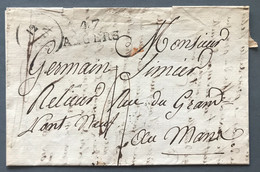 47
ANGERS
Monsieur
Germain Simier
Relieur Rue du Grand
Pont-Neuf
au Mans